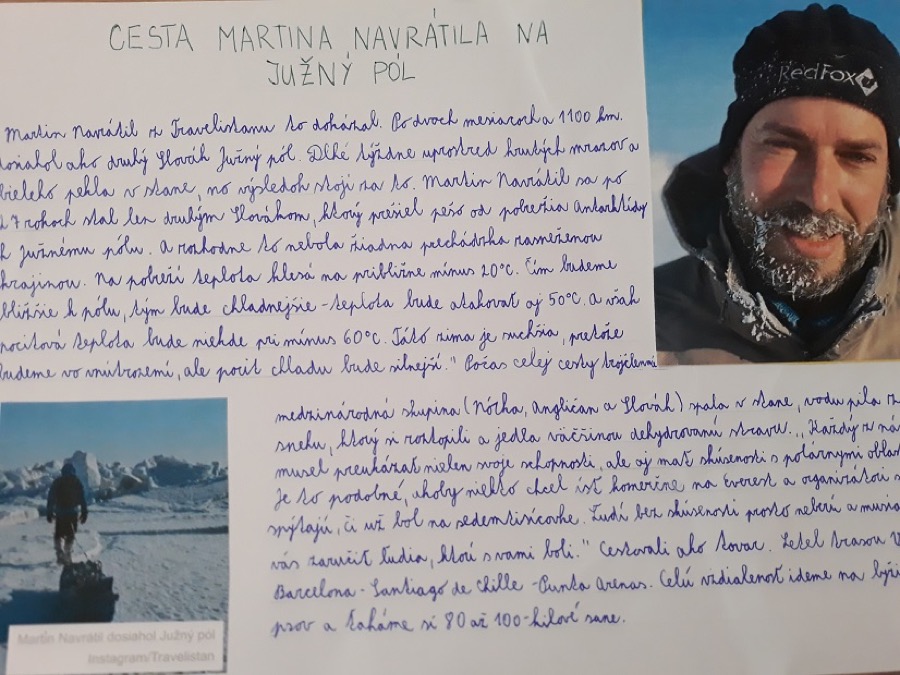 CESTA MARTINA NAVRÁTILA NA
JUŽNÝ PÓL
RedFox
Martin Navrátil z Travelistanu to dokázal. Po dvoch mesiacoch a 1100 km.
dosiahol ako druhý Slovák Južný pól. Dlhé týždne uprostred krutých mrazov a
bieleho pekla v stane, no výsledok stojí za to. Martin Navrátil sa po
27 rokoch stal len druhým Slovákom, ktorý prešiel pešo od pobrežia Antarktídy
k Južnému pólu. A rozhodne to nebola žiadna prechádzka zasneženou
krajinou. Na pobreží teplota klesá na približne mínus 20°C. Čím budeme
bližšie k pólu, tým bude chladnejšie - teplota bude atakovať aj 50°C. a však
pocitová teplota bude niekde pri mínus 60°C. Táto zima je suchšia, pretože
budeme vo vnútrozemí, ale pocit chladu bude silnejší." Počas celej cesty trojčlenná
medzinárodná skupina (Nórka, Angličan a Slovák) spala v stane, vodu pila z
snehu, ktorý si roztopili a jedla väčšinou dehydrovanú stravu. „Každý z ná
musel preukázať nielen svoje schopnosti, ale aj mať skúsenosti s polárnymi oblas
Je to podobné, akoby niekto chcel ísť komerčne na Everest a organizátori s
spýtajú, či už bol na sedemtisícovke. Ľudí bez skúseností prosto neberú a musia
vás zaručiť ľudia, ktorí s vami boli." Cestovali ako tovar. Letel trasou V
Barcelona - Santiago de Chille - Punta Arenas. Celú vzdialenosť ideme na byži
pzov a ťaháme si 80 až 100-kilové sane.
Martin Navrátil dosiahol Južný pól
Instagram/Travelistan